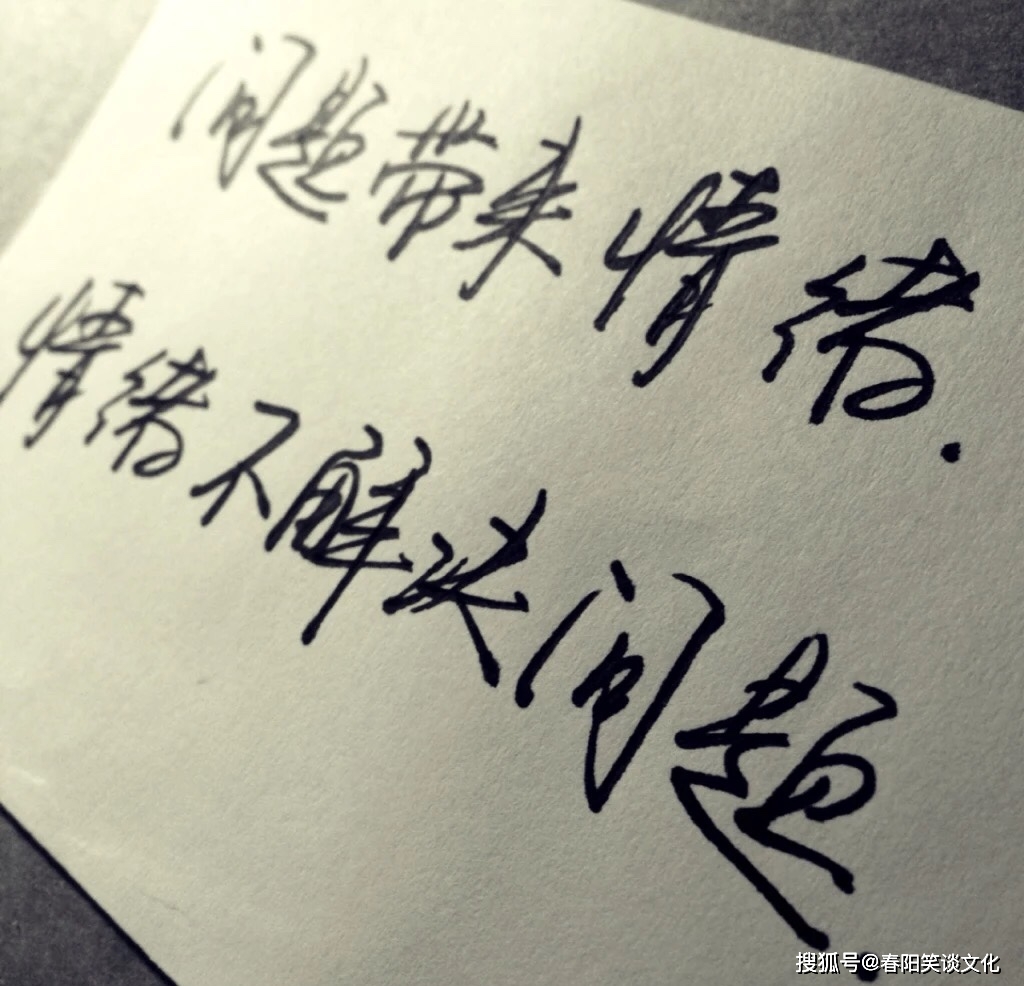 问题带来情绪.
情绪不解决问题.
搜狐号@春阳笑谈文化